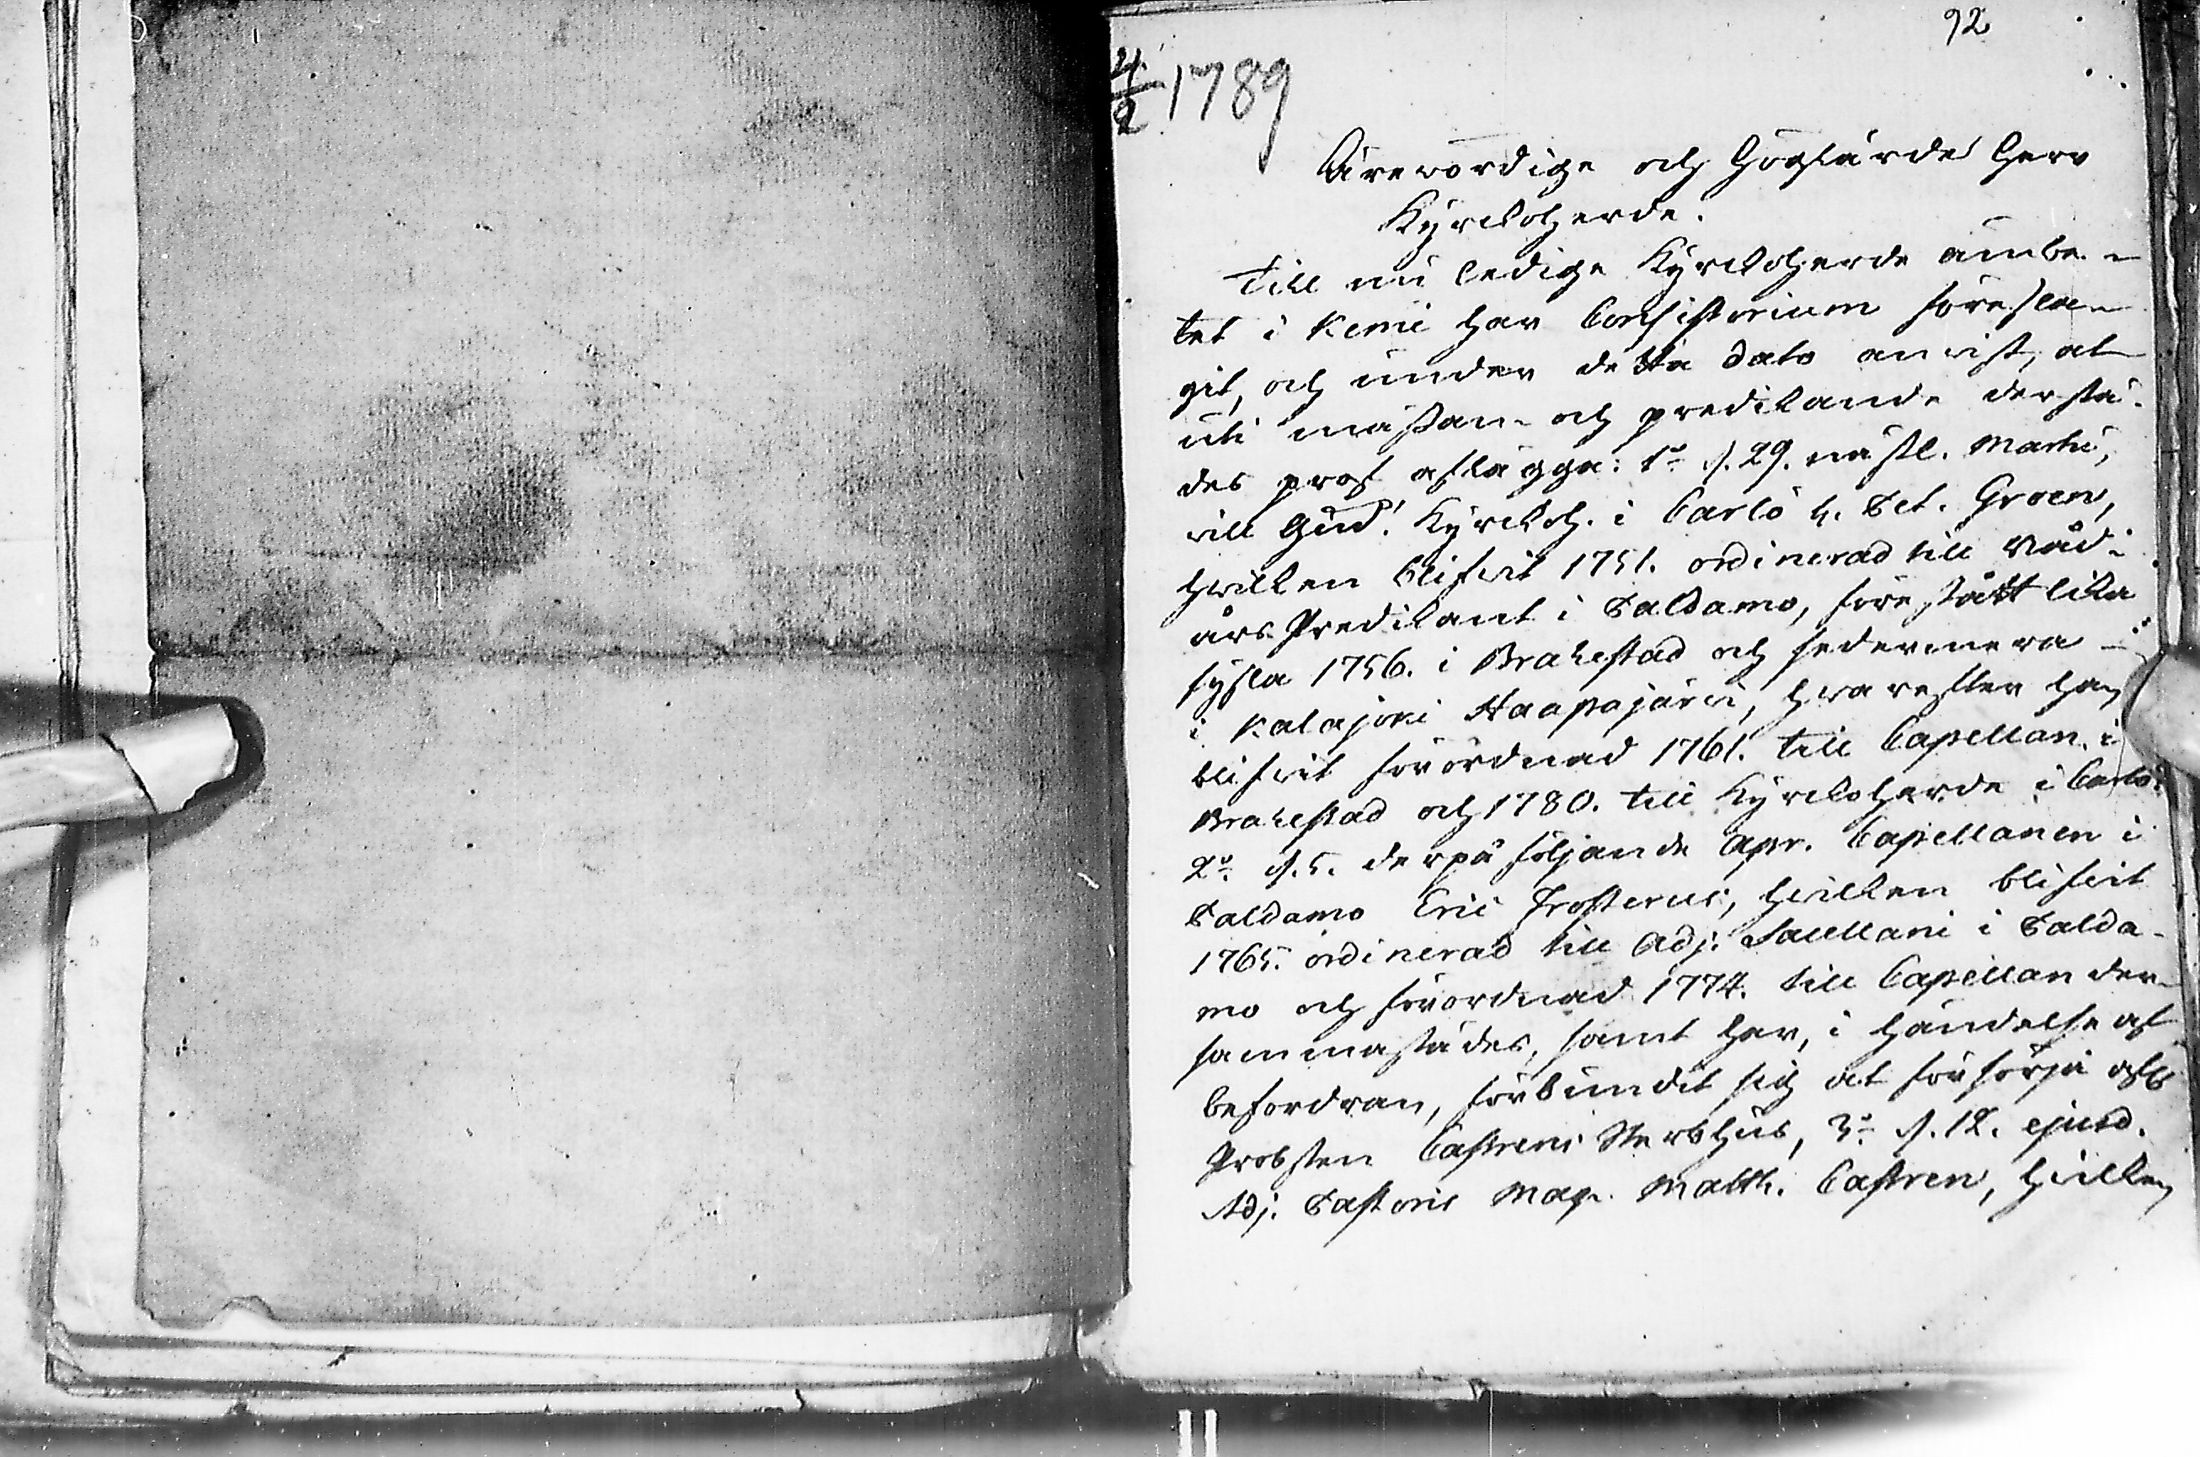 92
21/2 1789
Ärewördige och Höglärde Herr
Kyrckoherde.
Till nu ledige Kyrckoherde ämbe-
tet i Kemi har Consistoriumföresla-
git, och under detta dato anvist, at
uti mässan- och predikande derstä-
des prof aflägga: 1:o d. 29. nästl. Martii,
will Gud! Kyrckoh. i Carlö h. Pet. Groen,
hvilken blifvit 1751. ordinerad till Nåd-
års Predikant i Paldamo, förestått lika
sysla 1756. i Brahestad och sedermera
i Kalajoki Haapajärvi, hvarefter han
blifvit förordnad 1761. till Capellan i
Brahestad och 1780. till Kyrckoherde i Carlö:
2:o d. 5. derpå följande Apr. Capellanen i
Paldamo Eric Frosterus, hvilken blifvit
1765. ordinerad till Adj. Sacellani i Palda-
mo och förordnad 1774. till Capellan der-
sammastädes, samt har, i händelse af
befordran, förbundit sig at försörja afl.
Probsten Castrens Sterbhus, 3:o d. 12. ejusd.
Adj. Pastoris Mag. Matth. Castren, hvilken